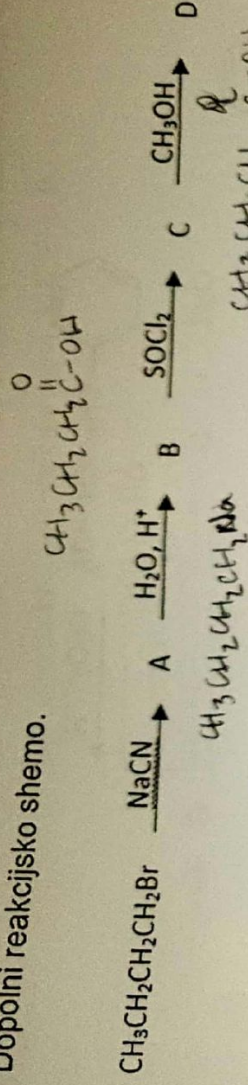 Dopolni reakcijsko shemo.
O
CH₃CH₂CH₂C-OH
CH₃CH₂CH₂CH₂Br NaCN A H₂O, H⁺ B SOCl₂ C CH₃OH D
CH₃CH₂CH₂CH₂Na